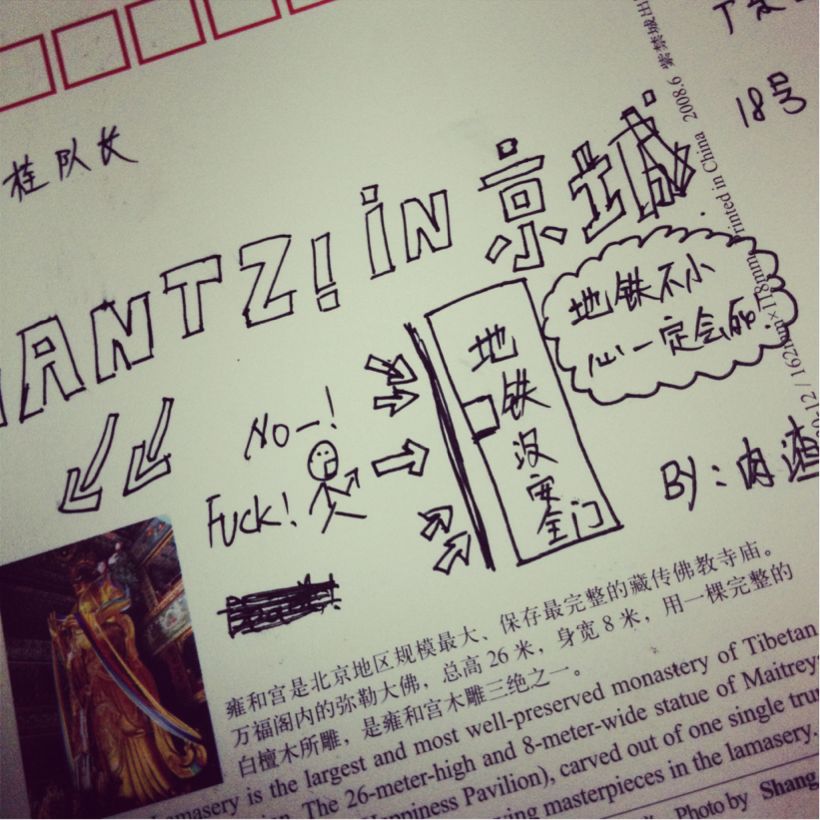 18号
2008.6 紫禁城出
Printed in China
桂队长
ANTZ! iN 京城
地铁不小
心一定会死!
地铁没安全门
No—!
Fuck!
By: 肉渣
162mm×118mm
雍和宫是北京地区规模最大、保存最完整的藏传佛教寺庙。
万福阁内的弥勒大佛,总高 26 米,身宽 8 米,用一棵完整的
白檀木所雕,是雍和宫木雕三绝之一。
Lamasery is the largest and most well-preserved monastery of Tibetan
The 26-meter-high and 8-meter-wide statue of Maitreya
Happiness Pavilion), carved out of one single trunk
ving masterpieces in the lamasery.
Photo by Shang